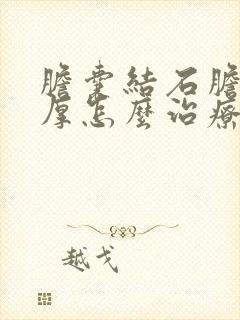 膽囊結石膽
厚怎麼治療
越戈